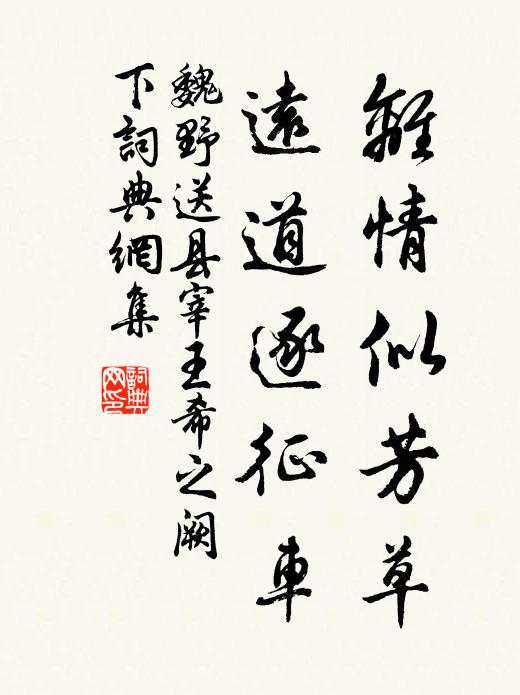 離情似芳草
遠道逐征車
魏野送县宰王希之阙
下詞典網集
詞典网印